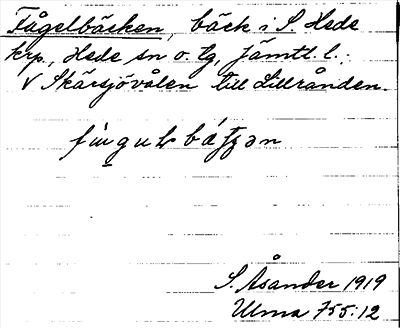 Fågelbäcken, bäck i S. Hede
krp., Hede sn o. tg, Jämtl. l.:
V Skärsjövålen till Lillrånden.
S. Åsander 1919
Ulma 755:12